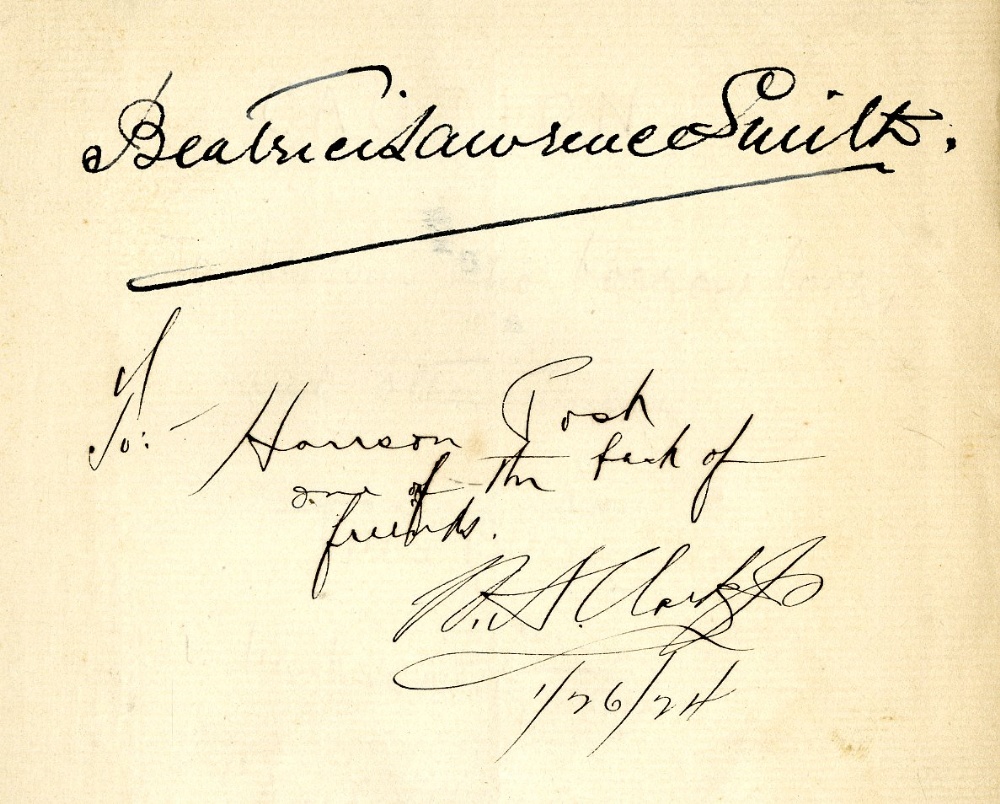 Beatrice Lawrence Smith.
To:- Harrison Posh
one of the back of
friends.
W. A. Clark Jr
1/26/24